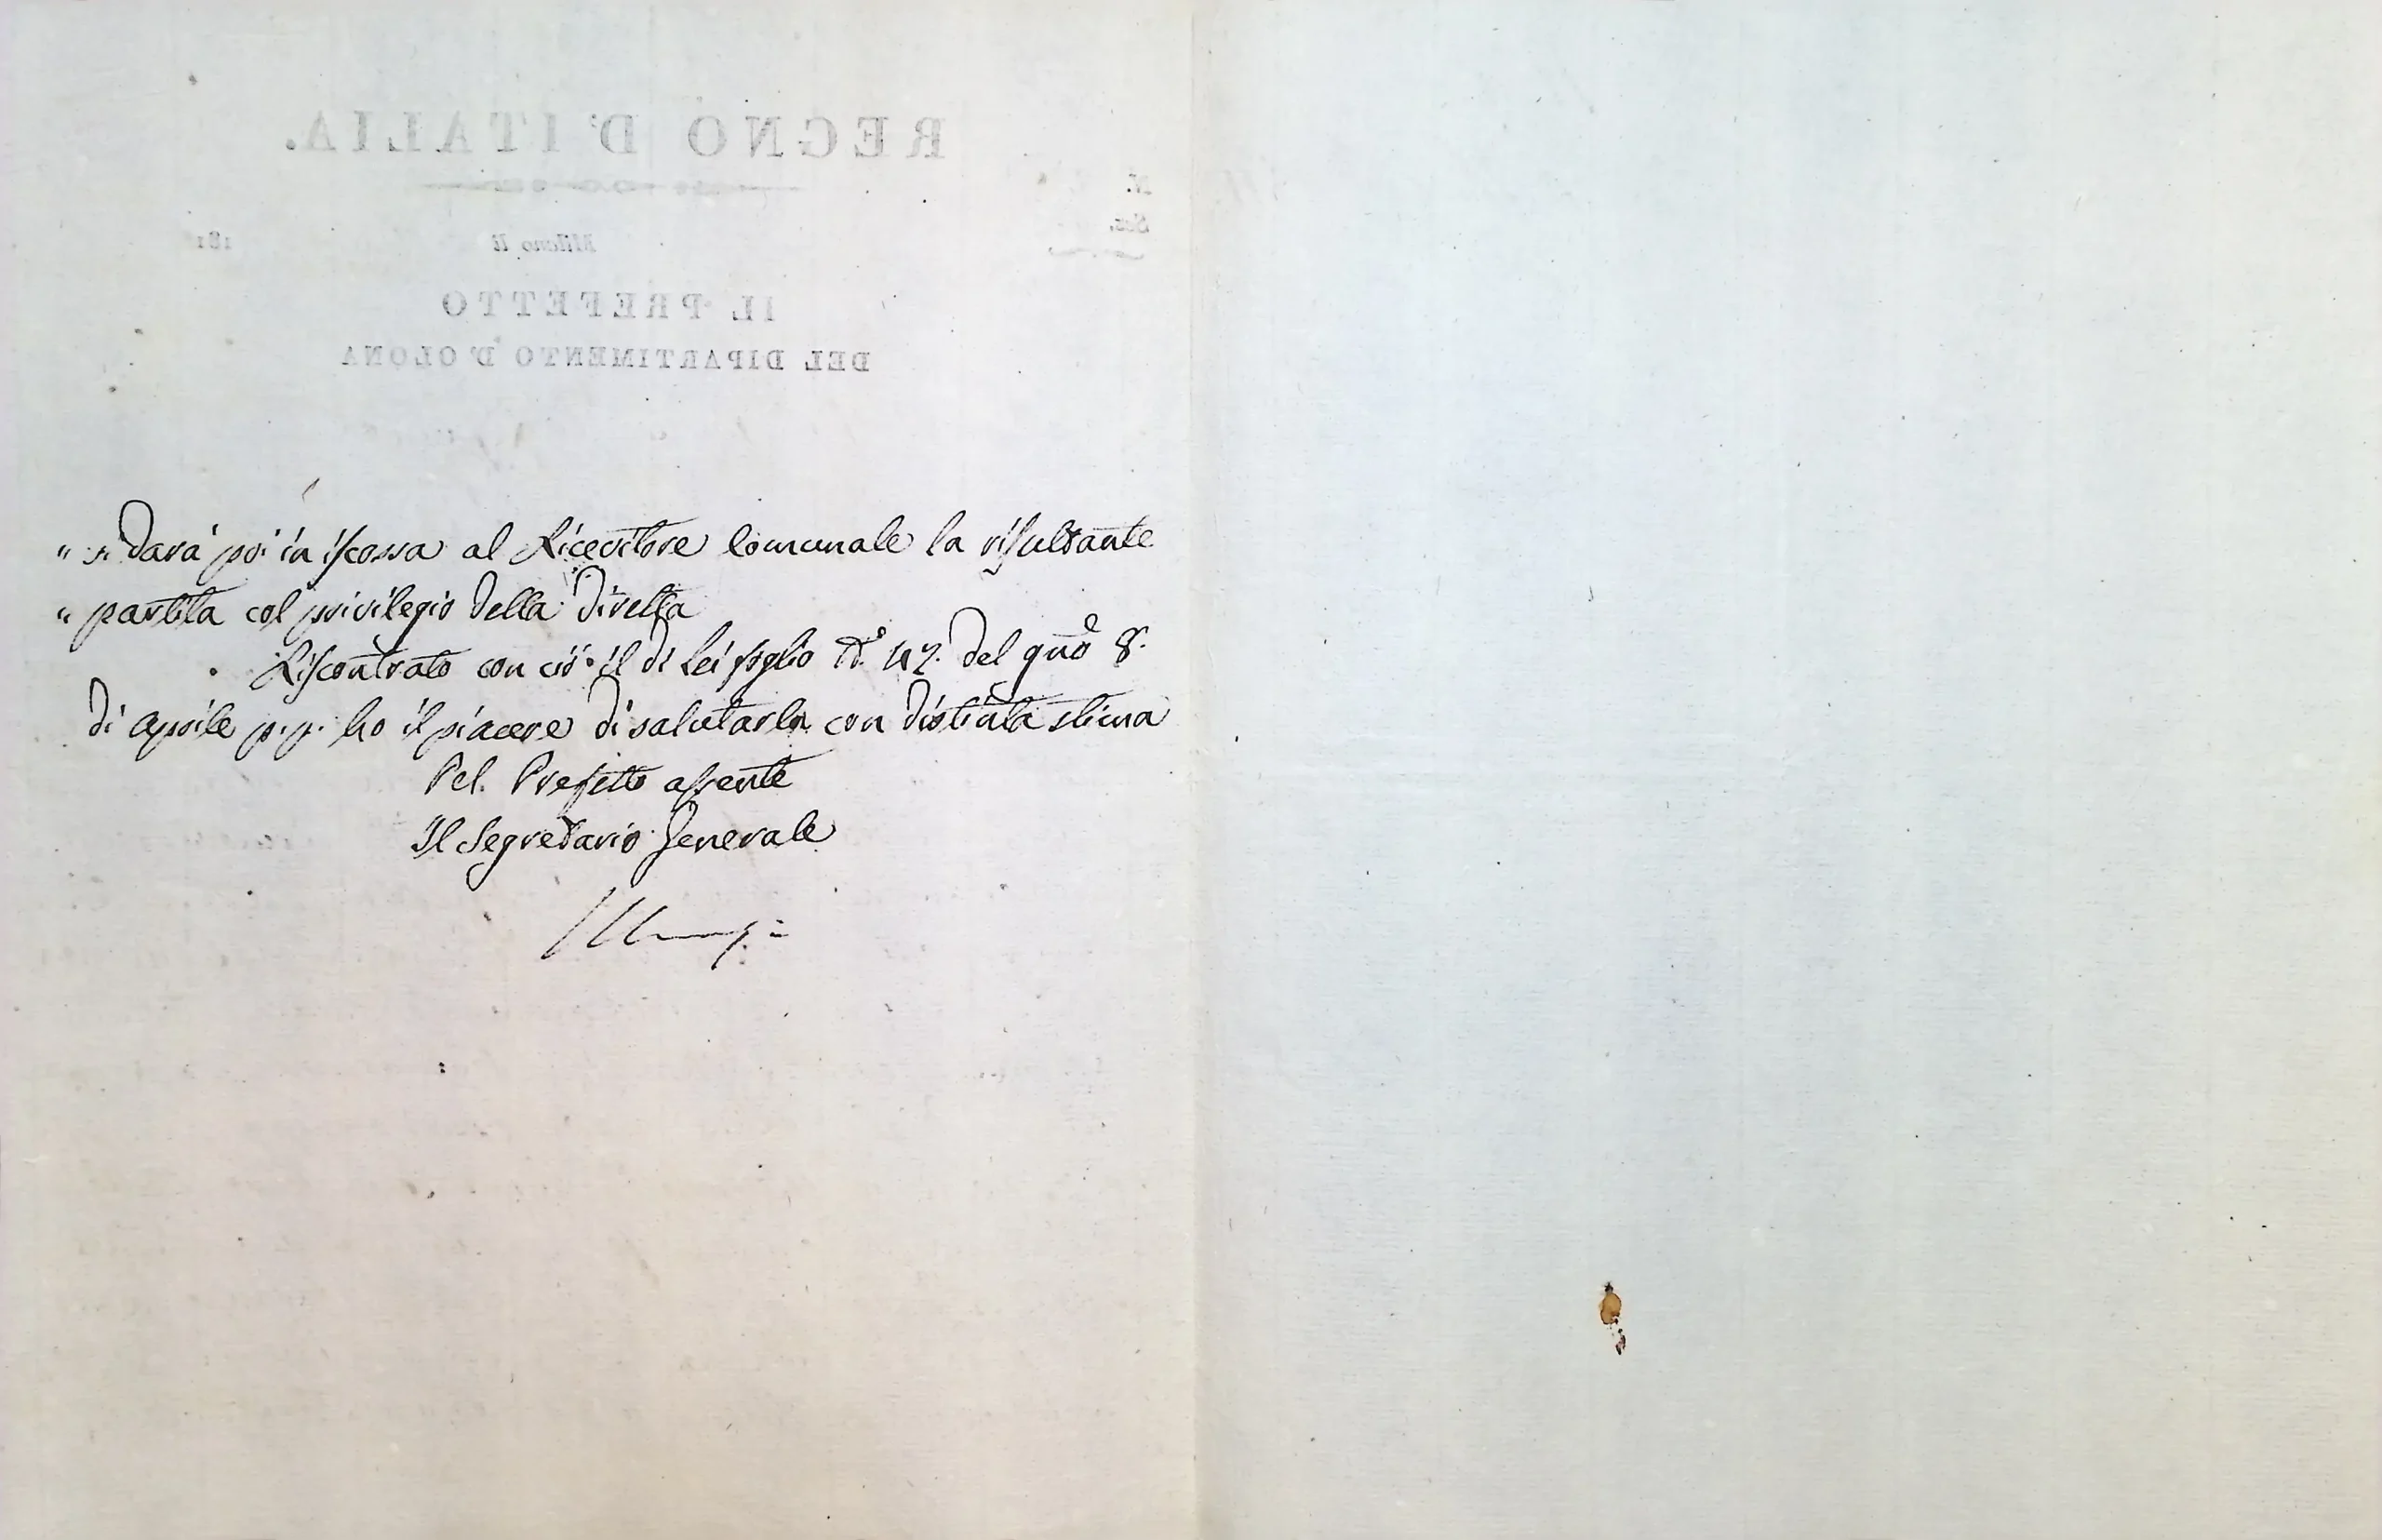 " si darà poi in iscossa al Ricevitore Comunale la risultante
" partita col privilegio della diretta
Riscontrato con ciò il di Lei foglio N.° 47. del gno 8.
di Aprile p.p. ho il piacere di salutarla con distinta stima
Pel. Prefetto assente
Il Segretario Generale
REGNO D'ITALIA.
N.
Sez.
Milano li 181
IL PREFETTO
DEL DIPARTIMENTO D'OLONA